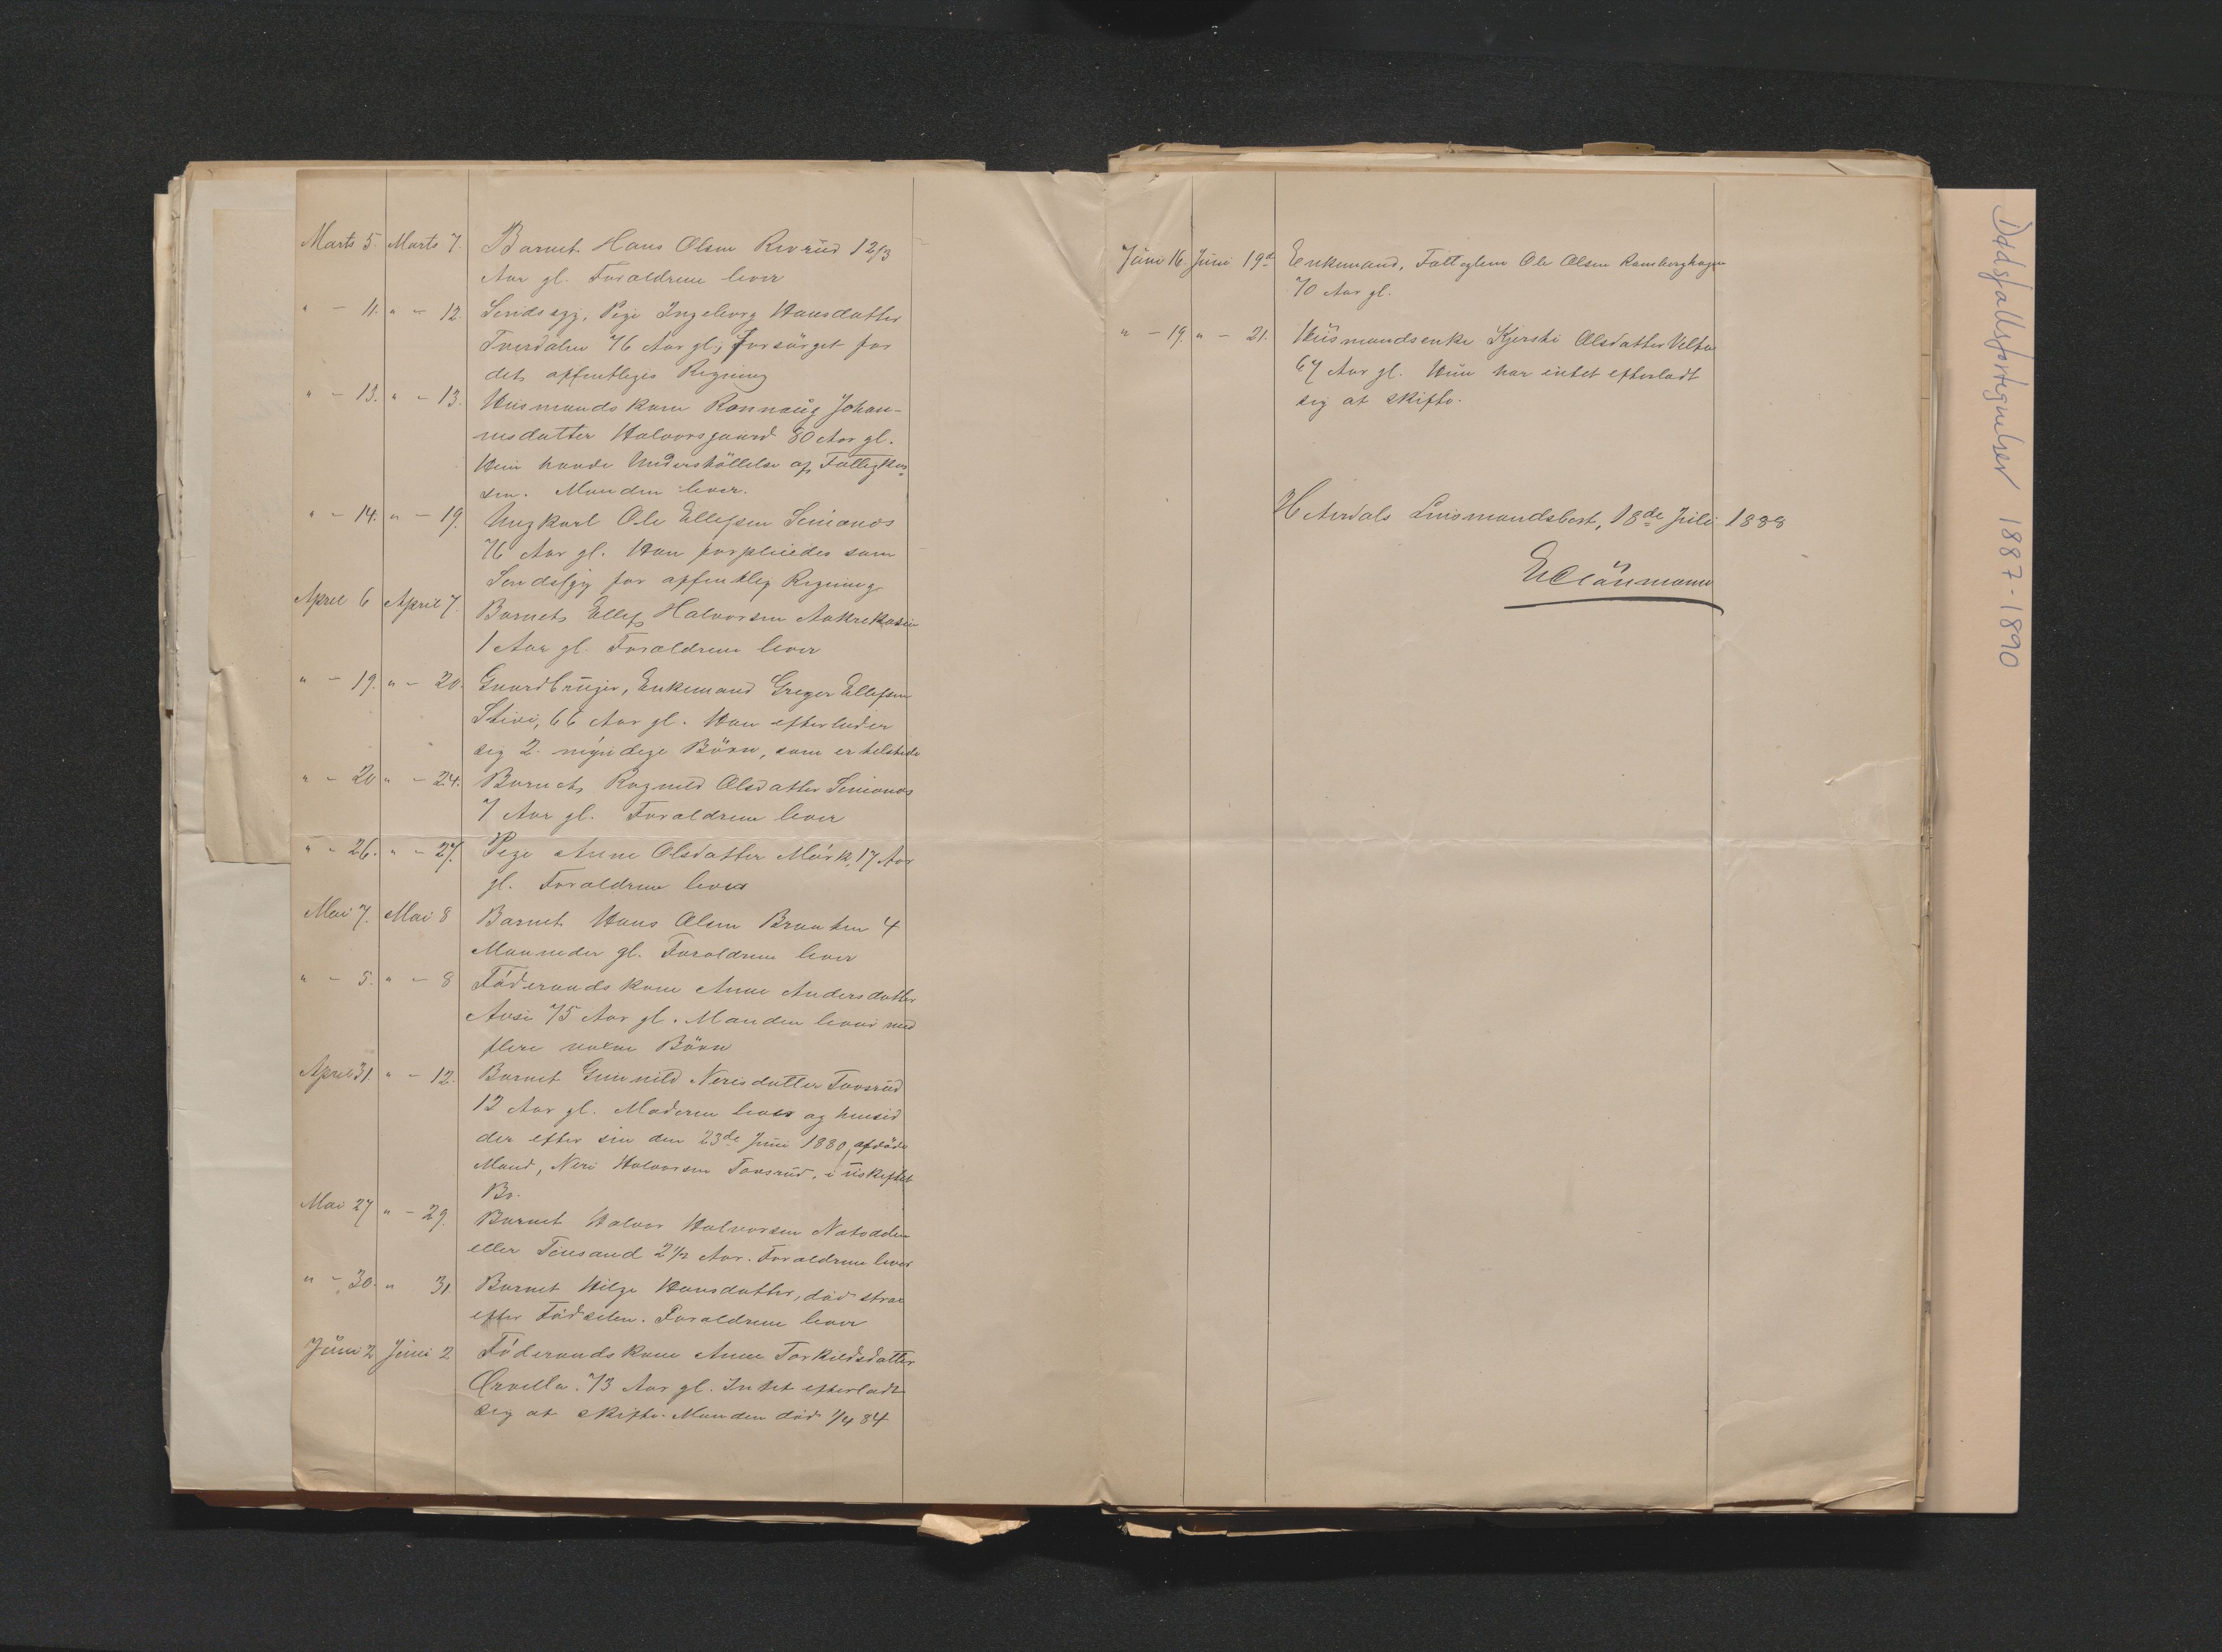 Marts 5. Marts 7. Barnet Hans Olsen Revrud 1 2/3
Aar gl. Forældrene lever
" - 11. " - 12. Sindssyg, Pige Ingeborg Hansdatter
Tverdalen 76 Aar gl; Forsörget for
det offentliges Regning
" - 13. " - 13. Husmandskone Rannaug Johan-
nesdatter Halvorsgaard 80 Aar gl.
Hun havde Understöttelse af Fattigkas-
sen. Manden lever.
" - 14. " - 19. Ungkarl Ole Ellefsen
76 Aar gl. Han forpleiedes som
Sindssyg for offentlig Regning
April 6 April 7. Barnet Ellef Halvorsen
1 Aar gl. Forældrene lever
" - 19. " - 20. Gaardbruger, Enkemand Greger Ellefsen
Stivi, 66 Aar gl. Han efterlader
sig 2 myndige Börn, som er tilstede
" - 20 " - 24. Barnet Ragnild Olsdatter
7 Aar gl. Forældrene lever
" - 26. " - 27. Pige Anne Olsdatter Mörk, 17 Aar
gl. Forældrene lever
Mai 7. Mai 8 Barnet Hans Olsen Braaten 4
Maaneder gl. Forældrene lever
" - 5. " - 8 Föderaadskone Anne Andersdatter
Aasi 75 Aar gl. Manden lever med
flere voxne Börn
April 31. " - 12. Barnet Gunnild Nerisdatter Tovsrud
12 Aar gl. Moderen lever og hensid
der efter sin den 23de Juni 1880 afdöde
Mand, Neri Halvorsen Tovsrud, i uskiftet
Bo.
Mai 27 " - 29. Barnet Halvor Halvorsen Notodden
eller Tinsand 2 1/2 Aar. Forældrene lever
" - 30. " 31. Barnet Hilge Hansdatter, död strax
efter Födselen. Forældrene lever
Juni 2 Juni 2 Föderaadskone Anne Torkildsdatter
Ørvella. 73 Aar gl. Intet efterladt
sig at skifte. Manden död 1/4 84
Juni 16. Juni 19de Enkemand, Fattiglem Ole Olsen Ramberghagen
70 Aar gl.
" - 19. " - 21. Husmandsenke Kjersti Olsdatter
67 Aar gl. Hun har intet efterladt
sig at skifte.
Hiterdals Lensmandsbest, 18de Juli 1888
Dødsfallsfortegnelser 1887-1890